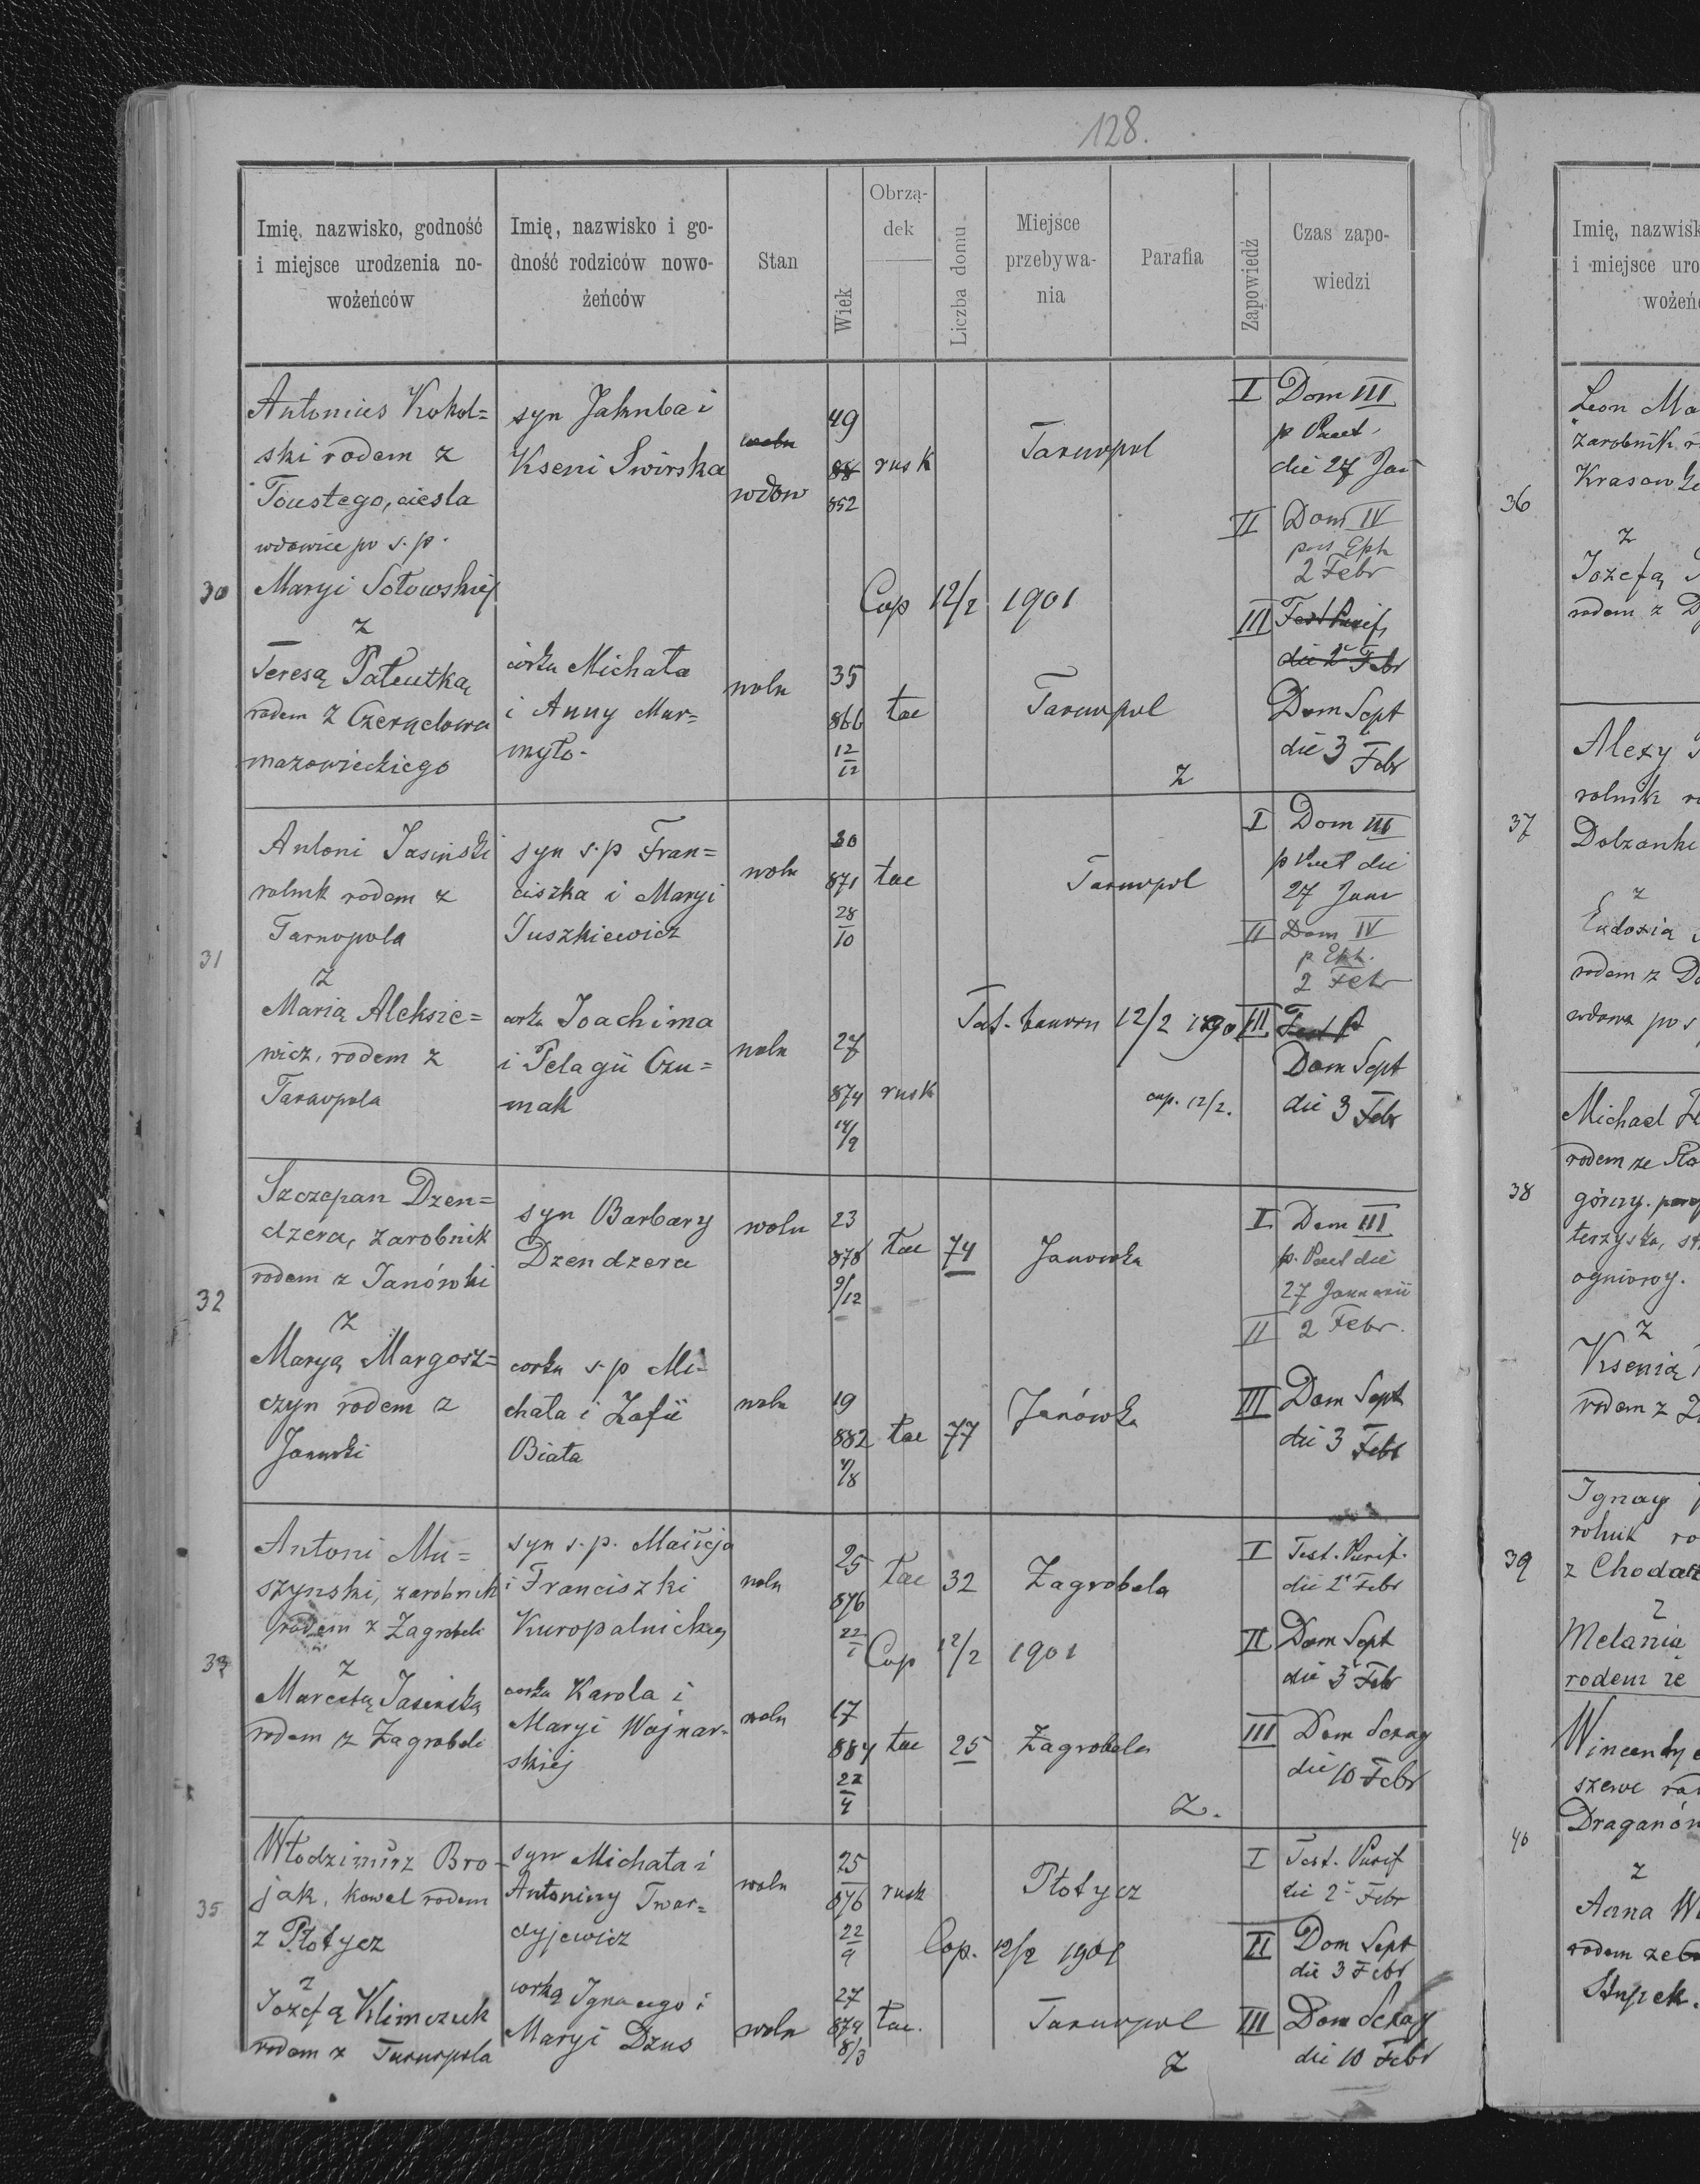 128.
Imię, nazwisko, godność
i miejsce urodzenia no-
wożeńców
Imię, nazwisko i go-
dność rodziców nowo-
żeńców
Stan
Wiek
Obrzą-
dek
Liczba domu
Miejsce
przebywa-
nia
Parafia
Zapowiedź
Czas zapo-
wiedzi
30
Antonius Kokol=
ski rodem z
Toustego, ciesla
wdowiec po s. p.
Maryi Sołowskiej
z
Teresą Pałeutką
rodem z
mazowieckiego
syn Jakuba i
Kseni Swirska
córka Michała
i Anny Mur=
myło.
woln
wdow
woln
49
88
852
35
866
12/12
rusk
łac
Tarnopol
Cop 12/2 1901
Tarnopol
Z
I Dom III
die 27 Jan
II Dom IV
pos Eph
2 Febr
III Fest Purif
die 2 Febr
Dom Sept
die 3 Febr
31
Antoni Jasiński
rolnik rodem z
Tarnopola
z
Marią Aleksie=
wicz, rodem z
Tarnopola
syn s. p Fran=
ciszka i Maryi
Juszkiewicz
corka Joachima
i Pelagii Czu=
mak
woln
woln
30
871
28/10
27
874
14/9
łac
rusk
Tarnopol
12/2
cop. 12/2.
I Dom III
die
27 Janu
II Dom IV
p Eph.
2 Febr
III
Dom Sept
die 3 Febr
32
Szczepan Dzen=
dzera, zarobnik
rodem z Janówki
z
Maryą Margosz=
czyn rodem z
syn Barbary
Dzendzera
corka s. p Mi-
chała i Zofii
Biała
woln
woln
23
878
9/12
19
882
łac 74
łac 77
Janowka
Janówka
I Dom III
27 Januarii
II 2 Febr.
III Dom Sept
die 3 Febr
33
Antoni Mu=
szynski, zarobnik
rodem z Zagrobeli
z
Jasińską
rodem z Zagrobeli
syn s. p. Macieja
i Franciszki
Kuropalnickiej
corka Karola i
Maryi Wojnar-
skiej
woln
woln
25
876
22/1
17
884
22/4
łac 32 Zagrobela
Cop 12/2 1901
łac 25 Zagrobela
Z.
I Fest. Purif.
die 2 Febr
II Dom Sept
die 3 Febr
III Dom Sexag
die 10 Febr
35
Włodzimirz Bro-
jak, kowal rodem
z Płotycz
z
Jozefą Klimczuk
rodem z Tarnopola
syn Michała i
Antoniny Twar=
dyjewicz
corką Ignacego i
Maryi Dzus
woln
woln
25
876
22/9
27
874
8/3
rusk
łac.
Płotycz
Cop. 12/2 1901
Tarnopol
Z
I Fest. Purif
die 2 Febr
II Dom Sept
die 3 Febr
III Dom Sexag
die 10 Febr
Imię, nazwisk
i miejsce uro
wożeń
36
Leon Ma
zarobnik r
z
Jozefą
rodem z D
37
Alexy
rolnik ro
Dolzanki
z
Eudoxią
rodem z Do
wdowa po s
38
Michael
rodem ze
górny.
ogniowy.
z
Ksenią
rodem z
39
Ignacy
rolnik ro
z
z
Melania
rodem ze
40
Wincenty
szewc
z
Anna
rodem ze
Słupek.